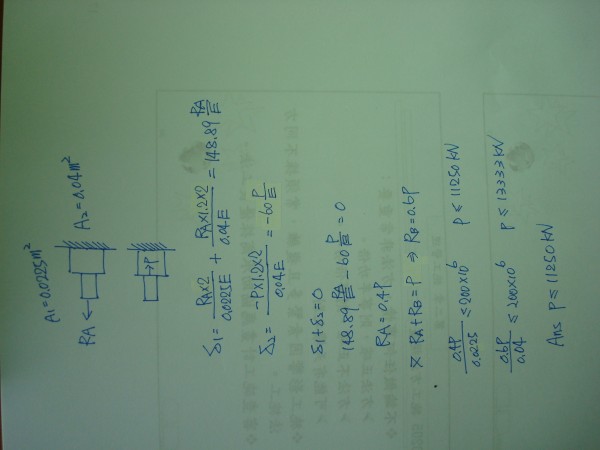 A1=0.0225m² A2=0.04m²
RA
P
δ1= RA×2/0.0225E + RA×1.2×2/0.04E = 148.89 RA/E
δ2= -P×1.2×2/0.04E = -60 P/E
δ1+δ2=0
148.89 RA/E - 60 P/E = 0
RA=0.4P
又 RA+RB=P ⇒ RB=0.6P
0.4P/0.0225 ≤200×10⁶ P≤11250KN
0.6P/0.04 ≤ 200×10⁶ P≤13333KN
Ans P≤11250KN